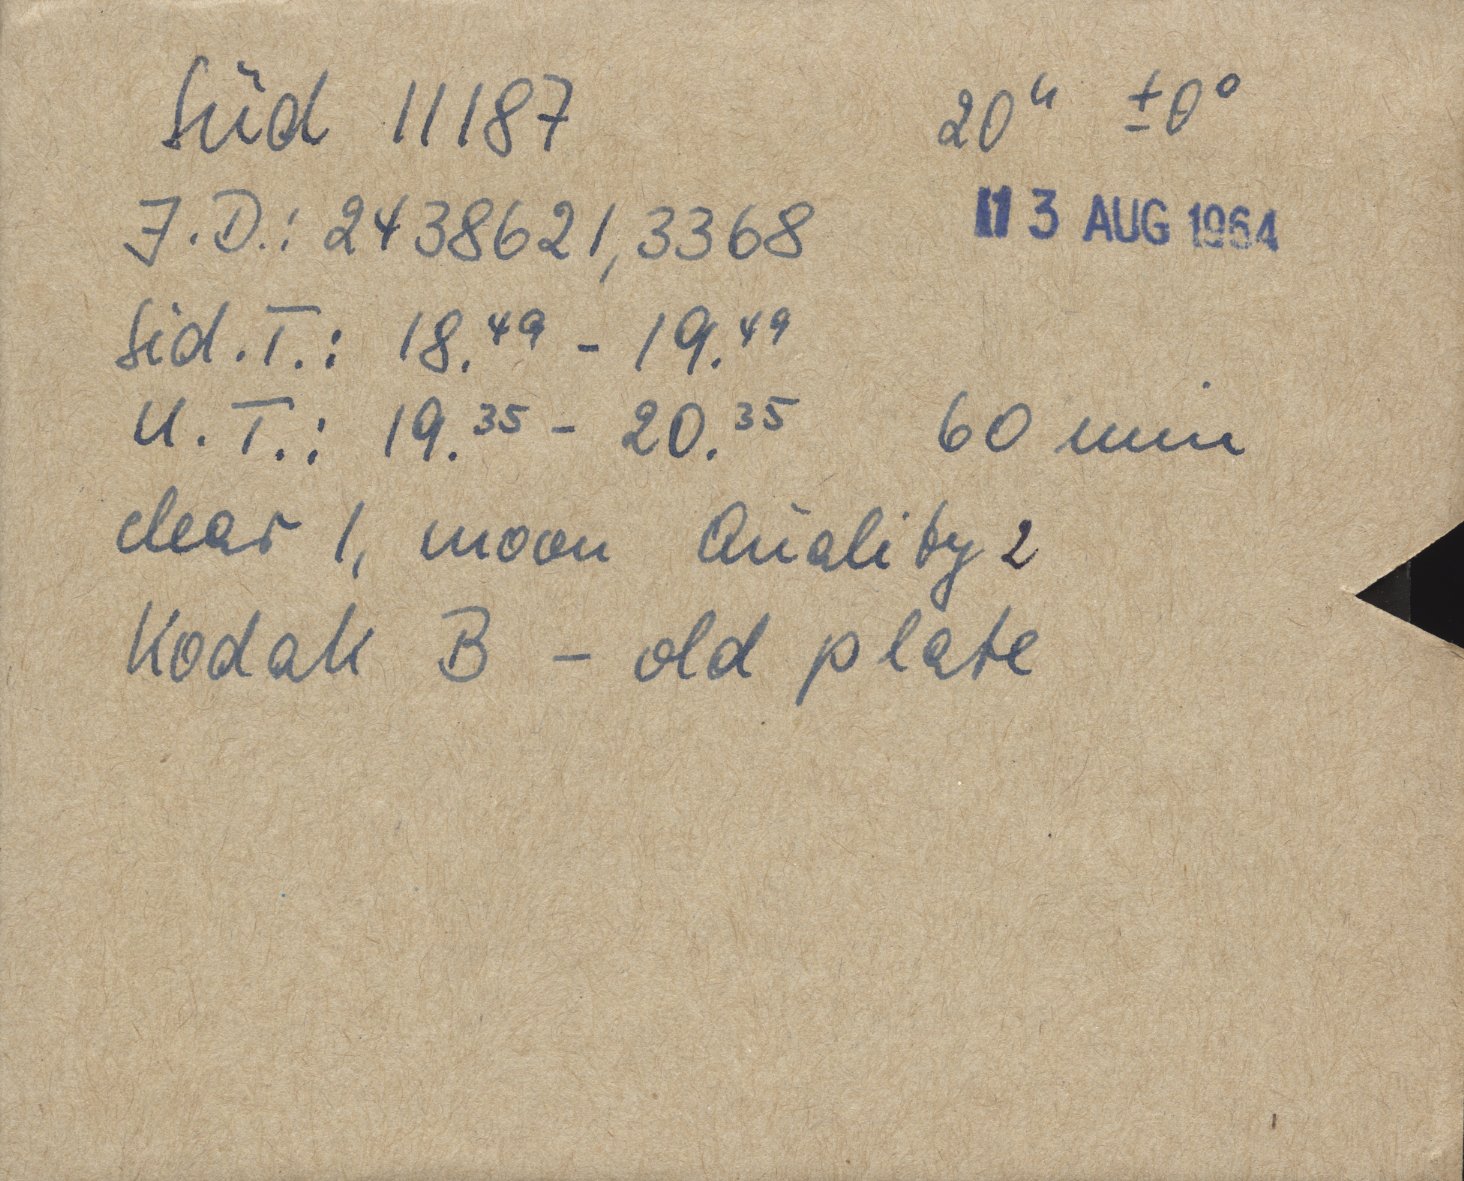 Süd 11187 20ʰ ±0°
J.D.: 2438621,3368 13 AUG 1964
Sid.T.: 18.⁴⁹ - 19.⁴⁹
U.T.: 19.³⁵ - 20.³⁵ 60 min
clear 1, moon Quality 2
Kodak B - old plate